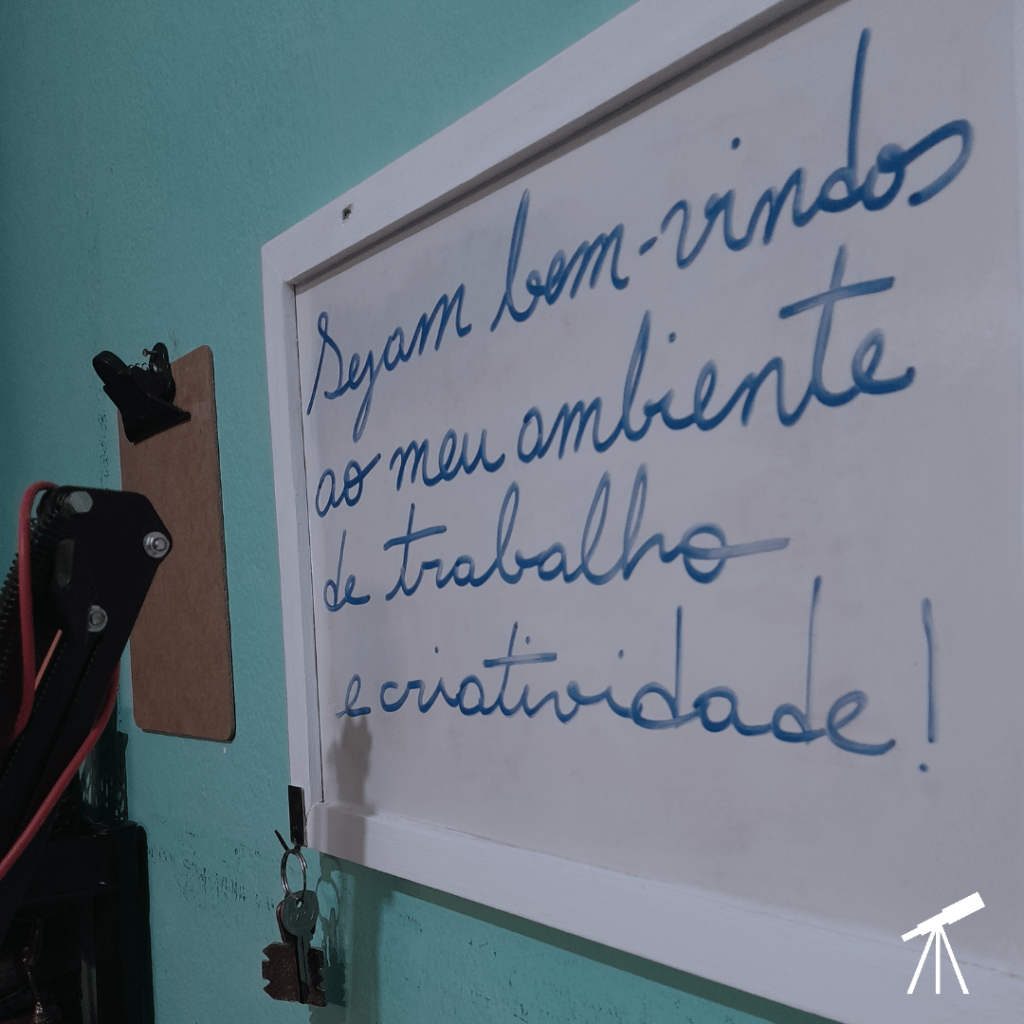 Sejam bem-vindos
ao meu ambiente
de trabalho
e criatividade!